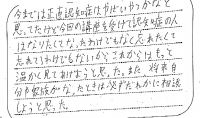 今までは正直認知症はやばいやつかなと
思ってたけど今回の講座を受けて認知症の人
はなりたくてなったわけでもなく忘れたくて
忘れてるわけでもないからこれからはもっと
温かく見てあげようと思った。また、将来自
分や家族がなったときは必ずだれかに相談
しようと思った。